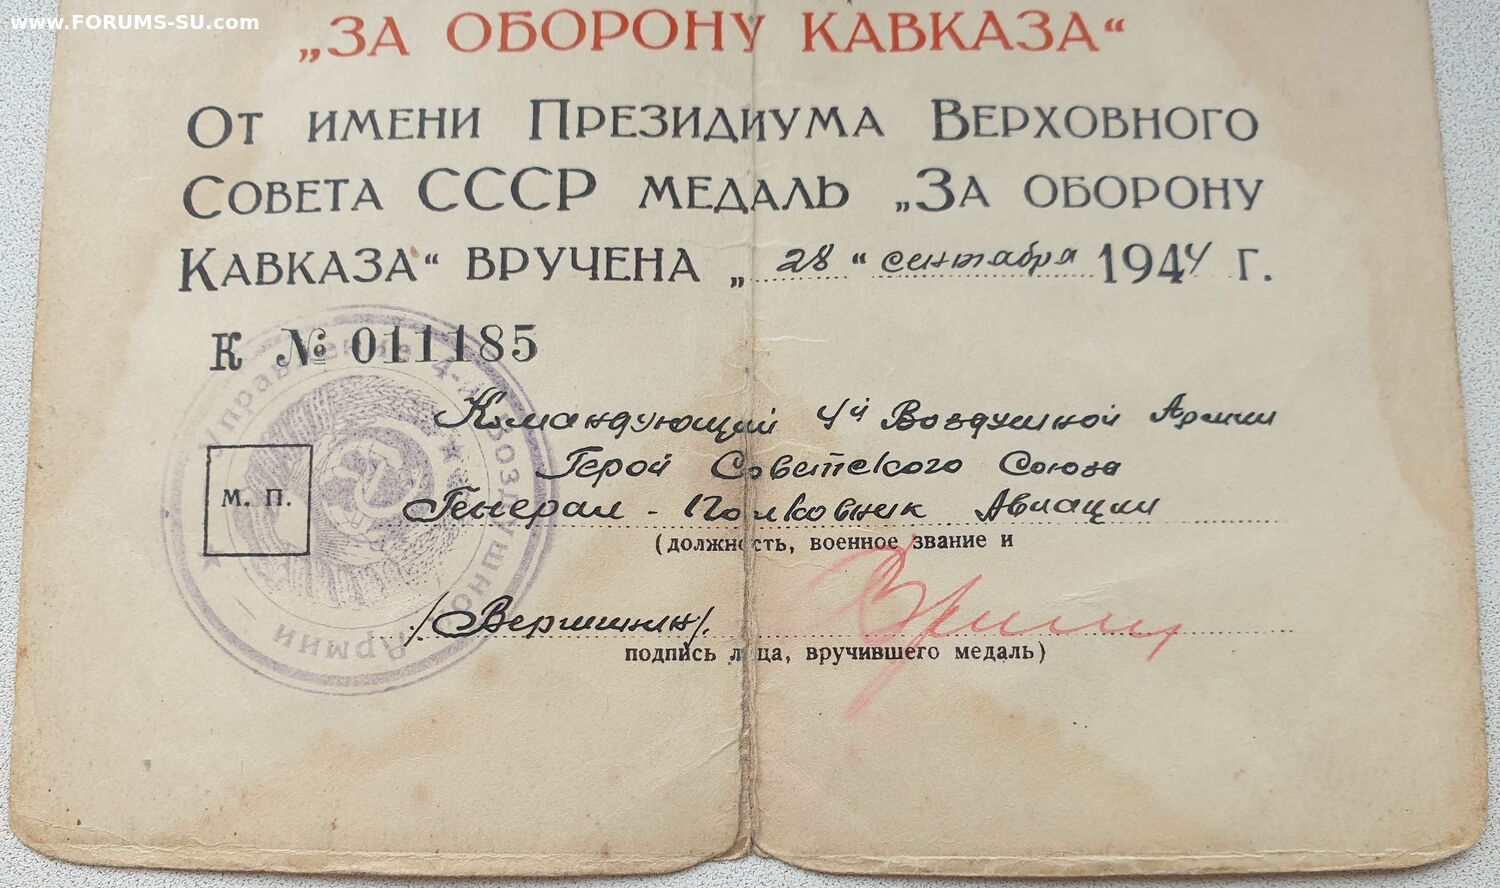 www.FORUMS-SU.com
„ЗА ОБОРОНУ КАВКАЗА“
От имени Президиума Верховного
Совета СССР медаль „За оборону
Кавказа“ вручена „28“ сентября 1944 г.
К № 011185
Управление 4-й Воздушной Армии
Командующий 4й Воздушной Армии
Герой Советского Союза
М. П.
Генерал-Полковник Авиации
(должность, военное звание и
/Вершинин/.
подпись лица, вручившего медаль)